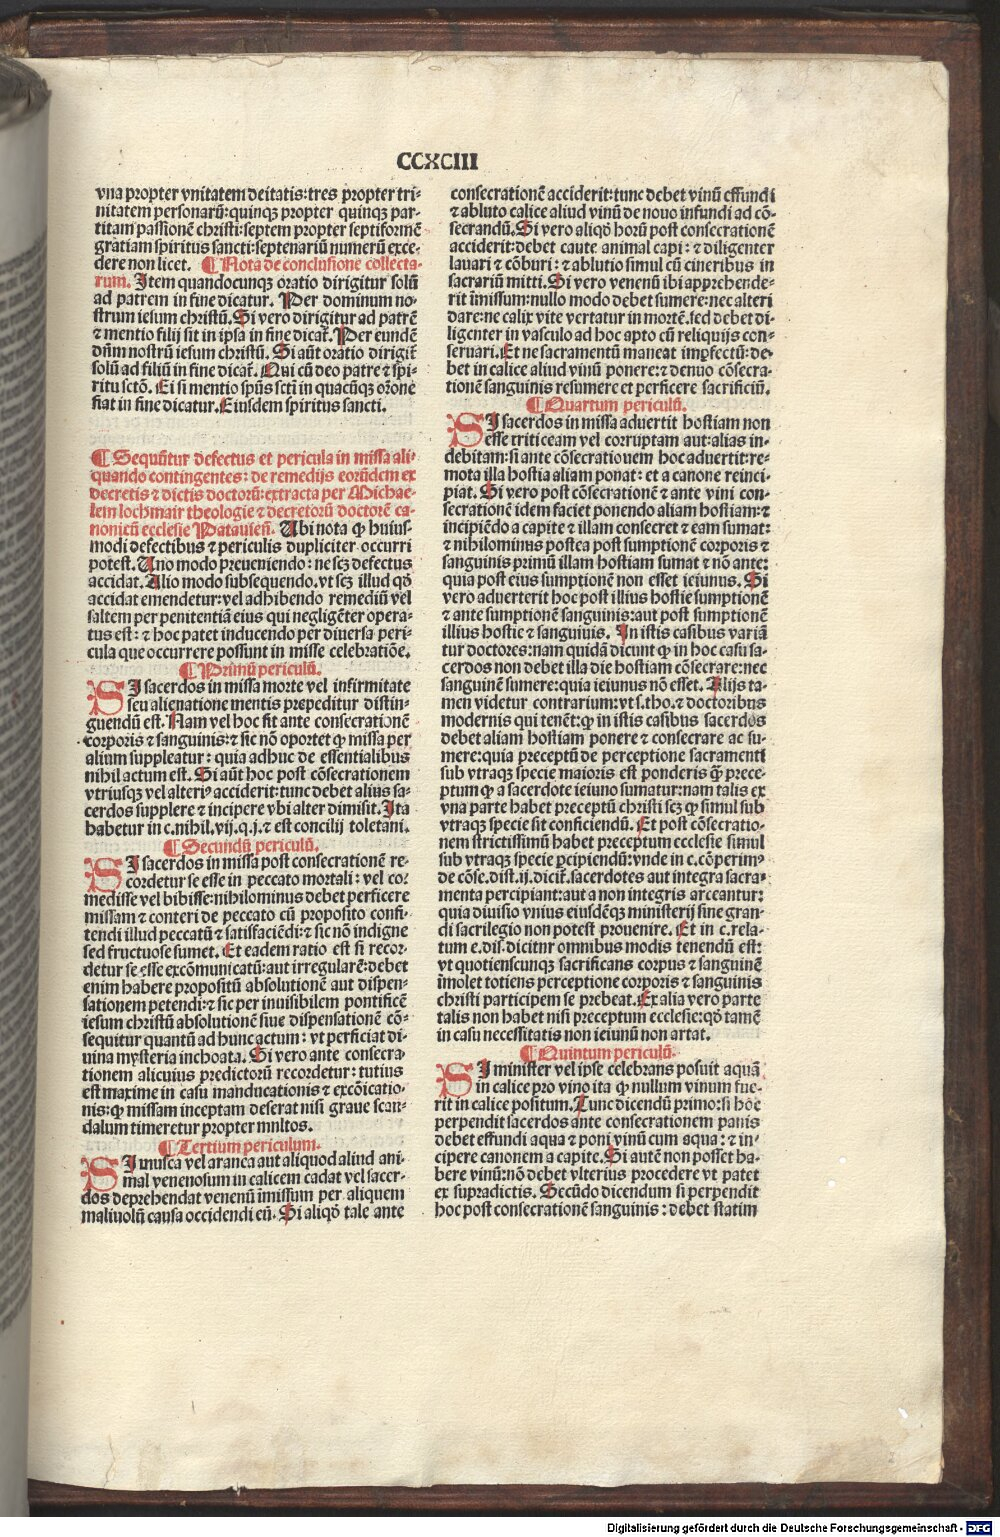 CCXCIII
vna propter vnitatem deitatis:tres propter tri-
nitatem personarū:quinqꝫ propter quinqꝫ par-
titam passionē christi:septem propter septiformē
gratiam spiritus sancti:septenariū numerū exce-
dere non licet. ¶ Nota de conclusione collecta-
rum. Item quandocunqꝫ oratio dirigitur solū
ad patrem in fine dicatur. Per dominum no-
strum iesum christū. Si vero dirigitur ad patrē
⁊ mentio filij sit in ipsa in fine dicat̄. Per eundē
dn̄m nostrū iesum christū. Si aūt oratio dirigit̄
solū ad filiū in fine dicat̄. Qui cū deo patre ⁊ spi-
ritu sctō. Ei si mentio spūs sctī in quacūqꝫ orōne
fiat in fine dicatur. Eiusdem spiritus sancti.
¶ Sequūtur defectus et pericula in missa ali-
quando contingentes: de remedijs eorūdem ex
decretis ⁊ dictis doctorū:extracta per Michae-
lem lochmair theologie ⁊ decretorū doctorē ca-
nonicū ecclesie Patauieñ. Ubi nota ꝙ huius-
modi defectibus ⁊ periculis dupliciter occurri
potest. Uno modo preueniendo: ne scꝫ defectus
accidat. Alio modo subsequendo. vt scꝫ illud qd̄
accidat emendetur:vel adhibendo remediū vel
saltem per penitentiā eius qui negligēter opera-
tus est: ⁊ hoc patet inducendo per diuersa peri-
cula que occurrere possunt in misse celebratiōe.
¶ Prīmū periculū.
SI sacerdos in missa morte vel infirmitate
seu alienatione mentis prepeditur distin-
guendū est. Nam vel hoc fit ante consecrationē
corporis ⁊ sanguinis:⁊ sic nō oportet ꝙ missa per
alium suppleatur: quia adhuc de essentialibus
nihil actum est. Si aūt hoc post cōsecrationem
vtriusqꝫ vel alteriꝰ acciderit:tunc debet alius sa-
cerdos supplere ⁊ incipere vbi alter dimisit. Ita
habetur in c.nihil.vij.q.j.⁊ est concilij toletani.
¶ Secundū periculū.
SI sacerdos in missa post consecrationē re-
cordetur se esse in peccato mortali: vel co-
medisse vel bibisse:nihilominus debet perficere
missam ⁊ conteri de peccato cū proposito confi-
tendi illud peccatū ⁊ satisfaciēdi:⁊ sic nō indigne
sed fructuose sumet. Et eadem ratio est si recor-
detur se esse excōmunicatū:aut irregularē:debet
enim habere propositū absolutionē aut dispen-
sationem petendi:⁊ sic per inuisibilem pontificē
iesum christū absolutionē siue dispensationē cō-
sequitur quantū ad hunc actum: vt perficiat di-
uina mysteria inchoata. Si vero ante consecra-
tionem alicuius predictorū recordetur: tutius
est maxime in casu manducationis ⁊ excōicatio-
nis:ꝙ missam inceptam deserat nisi graue scan-
dalum timeretur propter mnltos.
¶ Tertium periculum.
SI musca vel aranea aut aliquod aliud ani-
mal venenosum in calicem cadat vel sacer-
dos deprehendat venenū īmissum per aliquem
maliuolū causa occidendi eū. Si aliqd̄ tale ante
consecrationē acciderit:tunc debet vinū effundi
⁊ abluto calice aliud vinū de nouo infundi ad cō-
secrandū. Si vero aliqd̄ horū post consecrationē
acciderit:debet caute animal capi: ⁊ diligenter
lauari ⁊ cōburi: ⁊ ablutio simul cū cineribus in
sacrariū mitti. Si vero venenū ibi apprehende-
rit īmissum:nullo modo debet sumere:nec alteri
dare:ne calix vite vertatur in mortē. sed debet di-
ligenter in vasculo ad hoc apto cū reliquijs con-
seruari. Et ne sacramentū maneat imꝑfectū: de-
bet in calice aliud vinū ponere:⁊ denuo cōsecra-
tionē sanguinis resumere et perficere sacrificiū.
¶ Quartum periculū.
SI sacerdos in missa aduertit hostiam non
esse triticeam vel corruptam aut alias in-
debitam:si ante cōsecrationem hoc aduertit:re-
mota illa hostia aliam ponat: et a canone reinci-
piat. Si vero post cōsecrationē ⁊ ante vini con-
secrationē idem faciet ponendo aliam hostiam:⁊
incipiēdo a capite ⁊ illam consecret ⁊ eam sumat:
⁊ nihilominus postea post sumptionē corporis ⁊
sanguinis primū illam hostiam sumat ⁊ nō ante:
quia post eius sumptionē non esset ieiunus. Si
vero aduerterit hoc post illius hostie sumptionē
⁊ ante sumptionē sanguinis:aut post sumptionē
illius hostie ⁊ sanguinis. In istis casibus variā
tur doctores:nam quidā dicunt ꝙ in hoc casu sa-
cerdos non debet illa die hostiam cōsecrare:nec
sanguinē sumere:quia ieiunus nō esset. Alijs ta-
men videtur contrarium:vt s.tho.⁊ doctoribus
modernis qui tenēt:ꝙ in istis casibus sacerdos
debet aliam hostiam ponere ⁊ consecrare ac su-
mere:quia preceptū de perceptione sacramenti
sub vtraqꝫ specie maioris est ponderis q̄ꝫ prece-
ptum ꝙ a sacerdote ieiuno sumatur:nam talis ex
vna parte habet preceptū christi scꝫ ꝙ simul sub
vtraqꝫ specie sit conficiendū. Et post cōsecratio-
nem strictissimū habet preceptum ecclesie simul
sub vtraqꝫ specie ꝑcipiendū:vnde in c.cōperimꝰ
de cōse.dist.ij.dicit̄.sacerdotes aut integra sacra-
menta percipiant:aut a non integris arceantur:
quia diuisio vnius eiusdēqꝫ ministerij sine gran-
di sacrilegio non potest prouenire. Et in c.rela-
tum e.dis.dicitur omnibus modis tenendū est:
vt quotienscunqꝫ sacrificans corpus ⁊ sanguinē
īmolet totiens perceptione corporis ⁊ sanguinis
christi participem se prebeat. Ex alia vero parte
talis non habet nisi preceptum ecclesie:qd̄ tamē
in casu necessitatis non ieiunū non artat.
¶ Quintum periculū.
SI minister vel ipse celebrans posuit aquā
in calice pro vino ita ꝙ nullum vinum fue-
rit in calice positum. Tunc dicendū primo:si hōc
perpendit sacerdos ante consecrationem panis
debet effundi aqua ⁊ poni vinū cum aqua: ⁊ in-
cipere canonem a capite. Si autē non posset ha-
bere vinū:nō debet vlterius procedere vt patet
ex supradictis. Secūdo dicendum si perpendit
hoc post consecrationē sanguinis: debet statim
Digitalisierung gefördert durch die Deutsche Forschungsgemeinschaft - DFG